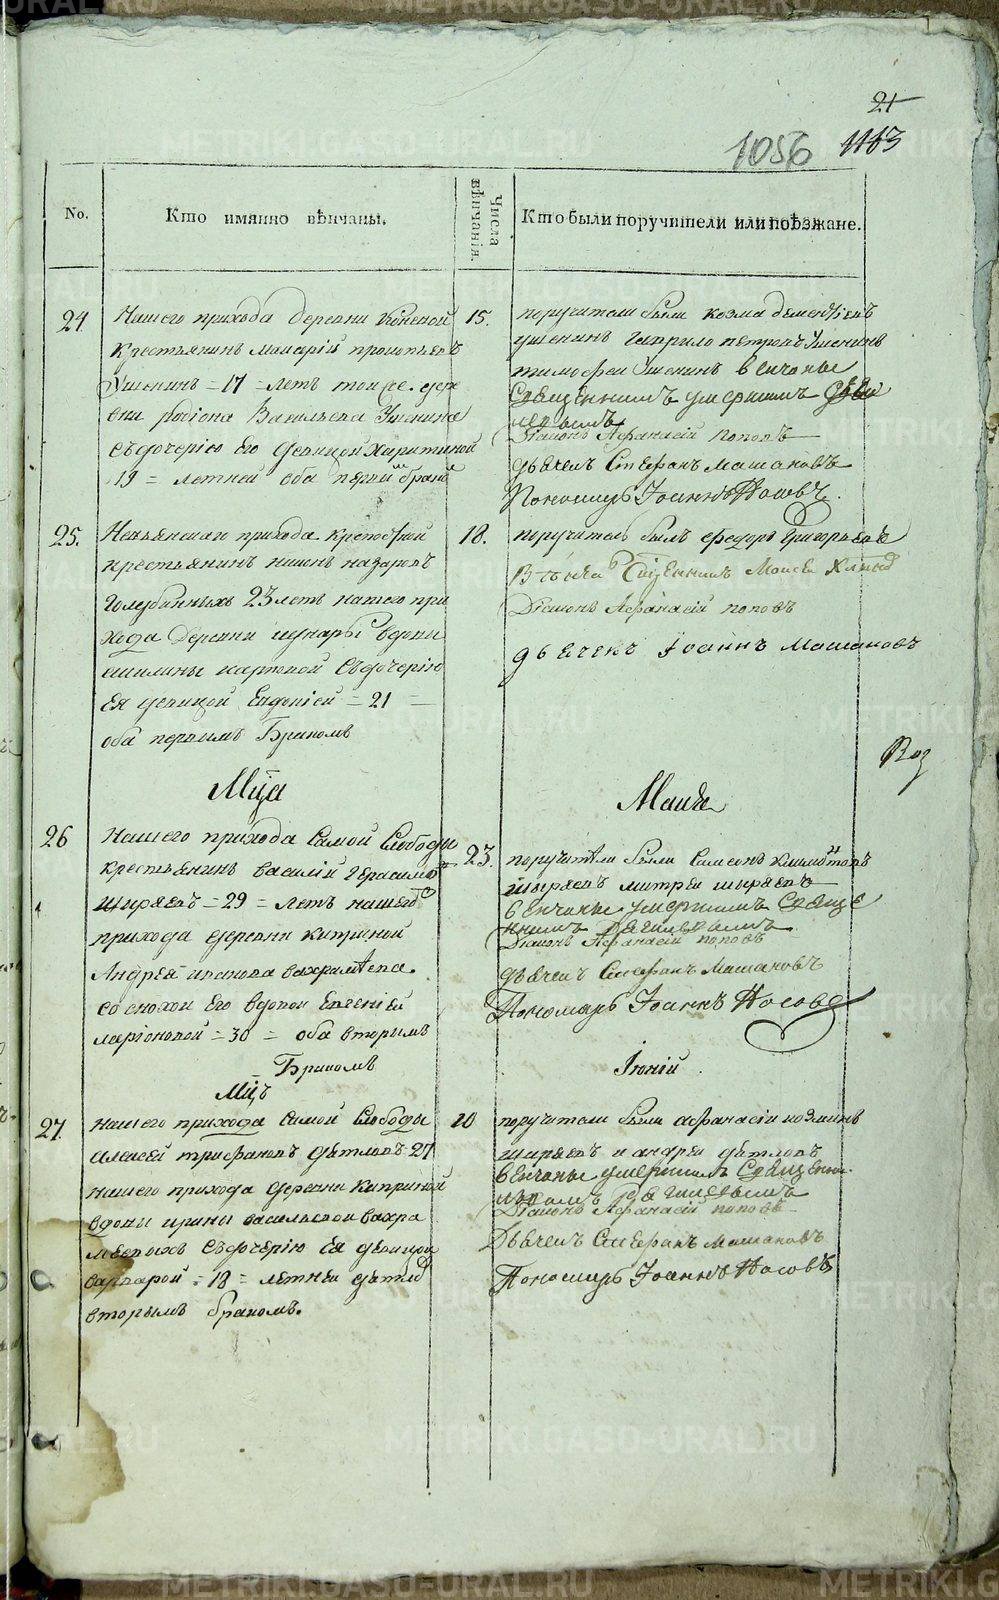 21
1056 1113
No.
Кто имянно вѣнчаны.
Числа вѣнчанія.
Кто были поручители или поѣзжане.
24
Нашего прихода деревни Коневой
крестьянинъ Макарій прокопьевъ
Ушенинъ = 17 = летъ тои же дер
вни родіона Васильева Ушенина
съ дочерію Его девицой Харитиной
19 = летней оба первы бракі
15.
поручители были козма дементіевъ
ушенинъ гаврило петровъ Ушенинъ
тимофеи Ушенинъ венчаны
Священникомъ умершимъ
Діаконъ Афанасій поповъ
дьячекъ Стефанъ Машановъ
Пономарь Іоаннъ Носовъ.
25.
Невьянскаго прихода крепостной
крестьянинъ никонъ назаровъ
Голубинныхъ 23 летъ нашего при
хода Деревни вдовы
акилины карповой съ дочерію
Ея девицой Евдокіей = 21 =
оба первымъ Бракомъ
18.
поручитель былъ федоръ григорьевъ
Вѣнча Сщенникъ Моисей
Діаконъ Афанасій поповъ
дьячекъ Іоаннъ Машановъ
Мца
Маия
26
Нашего прихода Самой Слободы
крестьянинъ василій Герасимов
Ширяевъ = 29 = летъ нашего
прихода деревни Киприной
Андрея ипатова вахрамѣева
со снохои Его вдовой Евгеніей
ларіоновой = 30 = оба вторымъ
Бракомъ
23.
поручители были Самсонъ
Ширяевъ митреи ширяевъ
венчаны умершимъ Свяще
нникомъ
Діаконъ Афанасій поповъ
дьячекъ Стефанъ Машановъ
Пономарь Іоаннъ Носовъ
Мцъ
Іюній
27.
нашего прихода Самой Слободы
алексей трифановъ дѣтловъ 27
нашего прихода деревни Киприной
вдовы ирины васильевои вахра
меевыхъ съ дочерію Ея девицой
варварой = 18 = летнеи
вторымъ бракомъ.
10
поручители были афанасіи козминъ
ширяевъ и андреи дѣтловъ
венчаны умершимъ Священн
икомъ
Діаконъ Афанасій поповъ
Дьячекъ Стефанъ Машановъ
Пономарь Іоаннъ Носовъ
METRIKI.GASO-URAL.RU